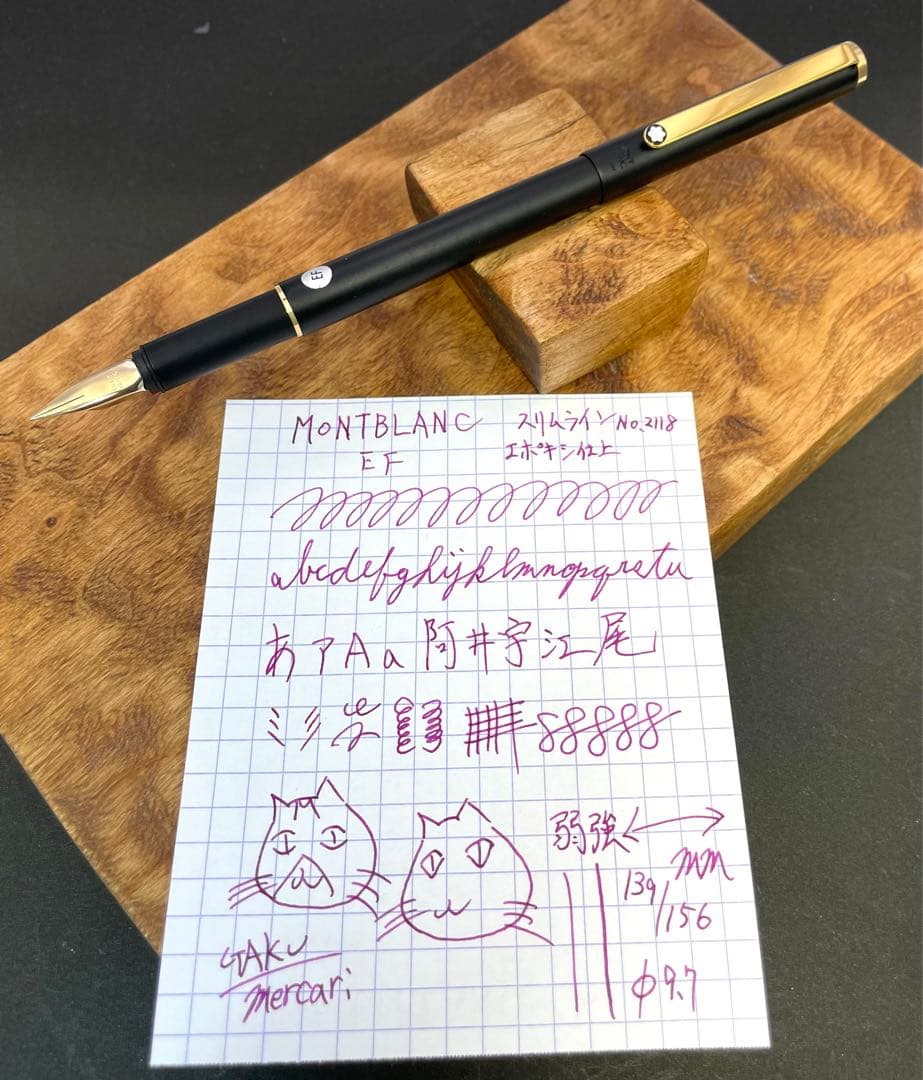 EF
MONTBLANC
EF
スリムラインNo.2118
エポキシ仕上
abcdefghijklmnopqrstu
あアAa阿井宇江尾
88888
弱強
mm
139/156
φ9.7
TAKU
mercari